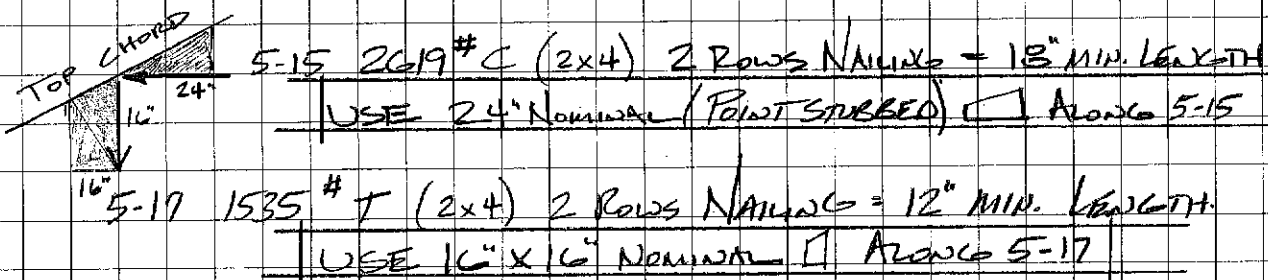 TOP CHORD
5-15 2619# C (2x4) 2 ROWS NAILING = 18" MIN. LENGTH
24"
16"
USE 24" NOMINAL (POINT STUBBED) ALONG 5-15
16"
5-17 1535# T (2x4) 2 ROWS NAILING = 12" MIN. LENGTH.
USE 16" X 16" NOMINAL ALONG 5-17